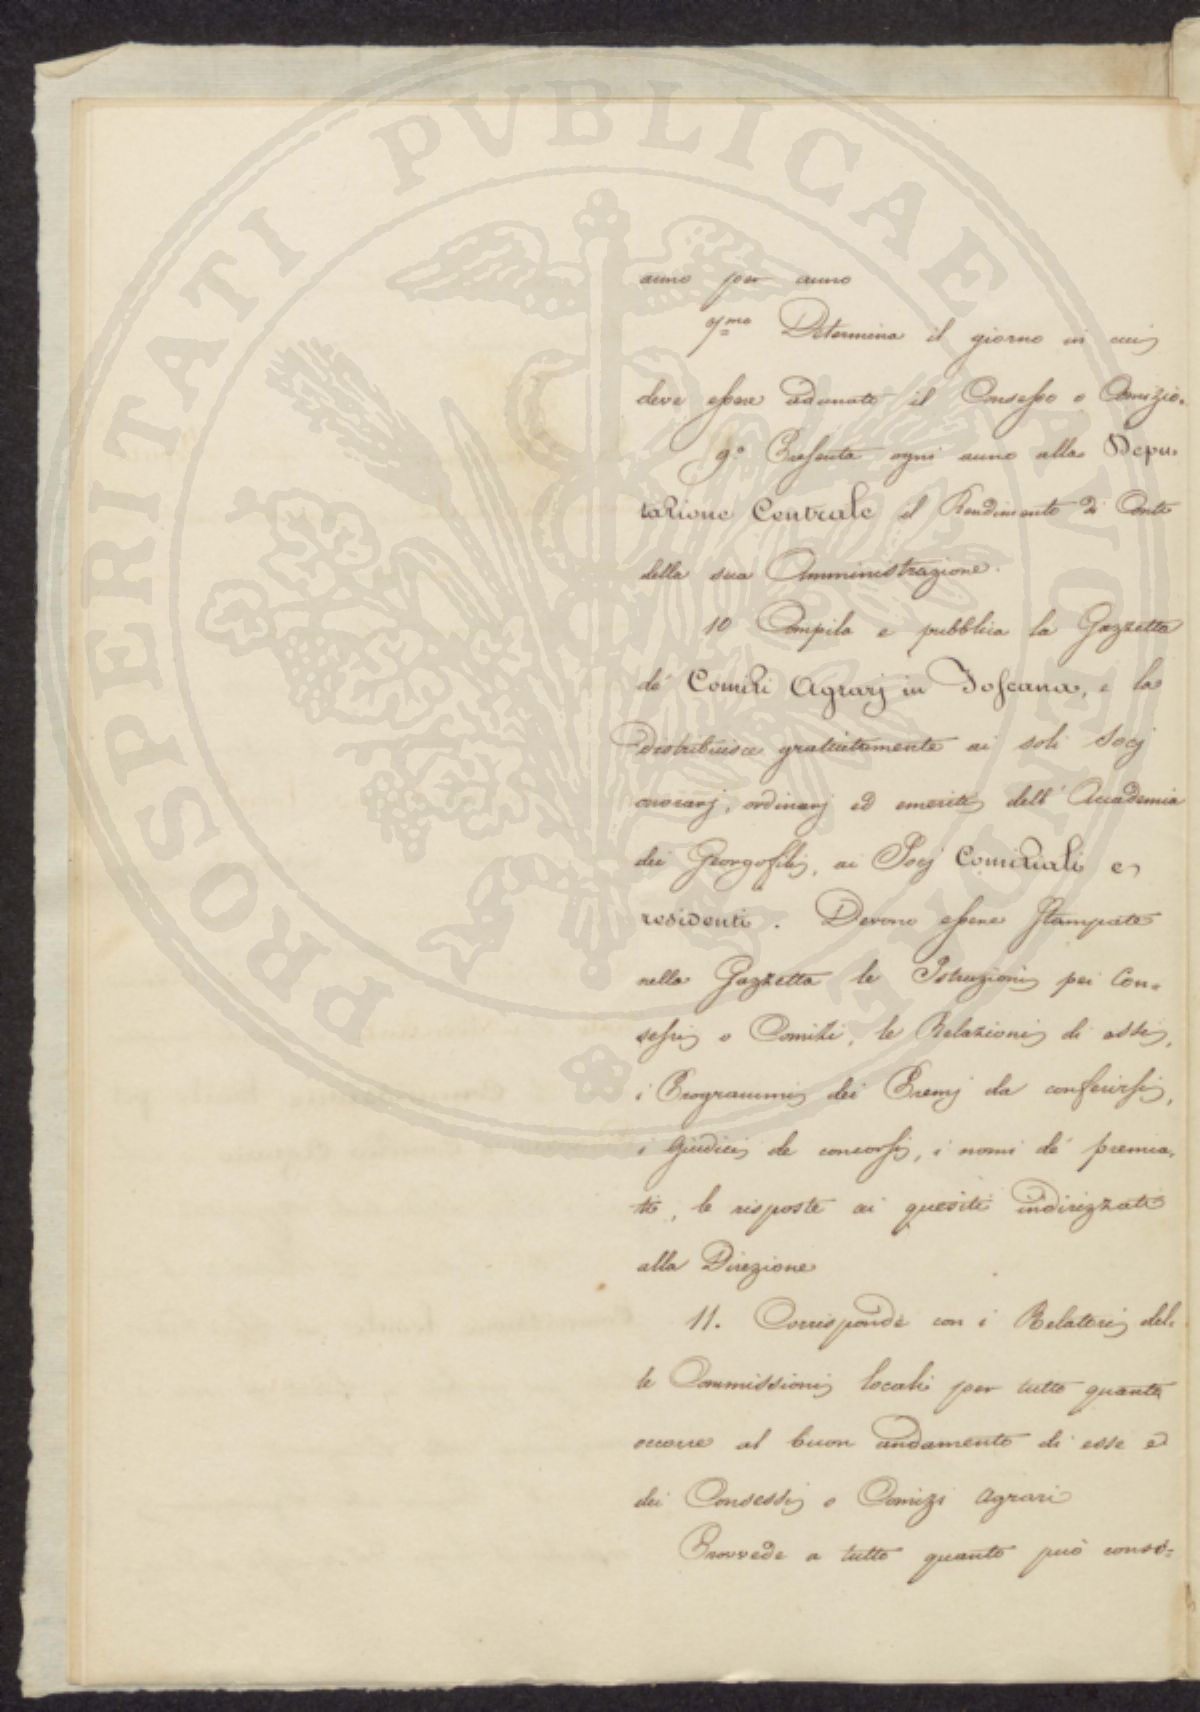 PROSPERITATI PVBLICAE AVGENDAE
anno per anno
Determina il giorno in cui
deve essere adunato il Consesso o Comizio.
9.° Presenta ogni anno alla Depu-
tazione Centrale il Rendimento di Conti
della sua Amministrazione.
10 Compila e pubblica la Gazzetta
de' Comizi Agrarj in Toscana, e la
distribuisce gratuitamente ai soli Socj
onorarj, ordinarj ed emeriti dell'Accademia
dei Georgofili, ai Socj Comiziali e
residenti. Devono essere stampate
nella Gazzetta le Istruzioni pei Con-
sessi o Comizi, le Relazioni di essi,
i Programmi dei Premj da conferirsi,
i giudici de concorsi, i nomi de' premia-
ti, le risposte ai quesiti indirizzati
alla Direzione
11. Corrisponde con i Relatori del-
le Commissioni locali per tutto quanto
occorre al buon andamento di esse e
dei Consessi o Comizi agrari
Provvede a tutto quanto può consi-